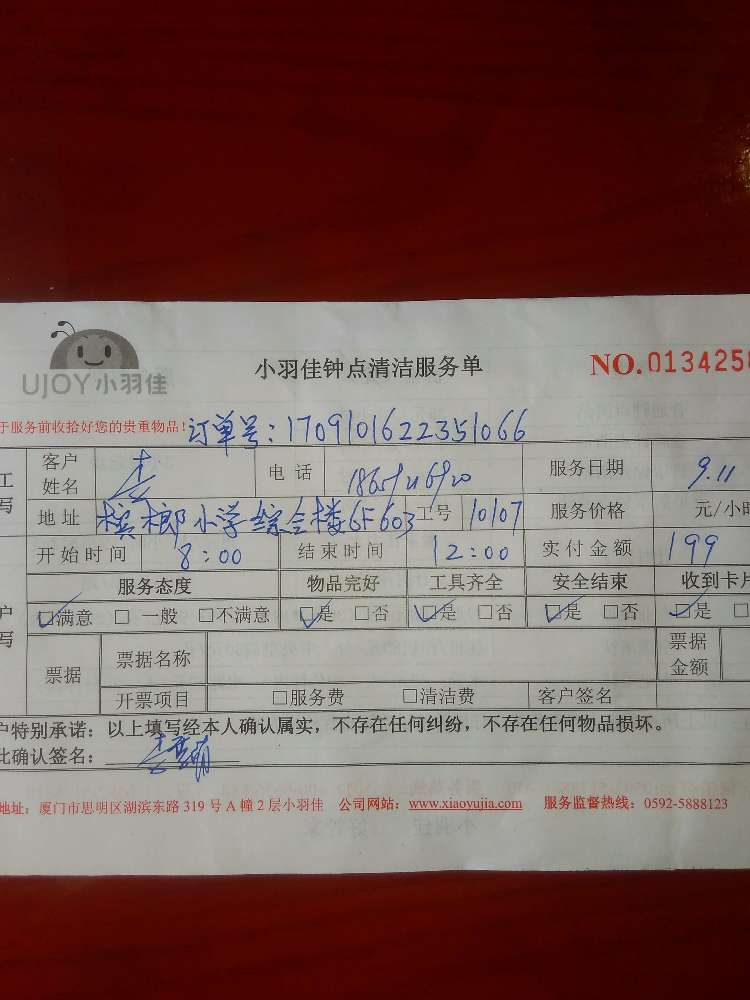 UJOY小羽佳
小羽佳钟点清洁服务单
NO.0134258
于服务前收拾好您的贵重物品!订单号:170910162235106​6
工 客户姓名 李 电话 服务日期 9.11
写 地址 槟榔小学综合楼6F603 工号 10107 服务价格 元/小时
开始时间 8:00 结束时间 12:00 实付金额 199
服务态度 物品完好 工具齐全 安全结束 收到卡片
户 ☑满意 □一般 □不满意 ☑是 □否 ☑是 □否 ☑是 □否 ☑是 □
写 票据 票据名称 票据金额
开票项目 □服务费 □清洁费 客户签名
户特别承诺:以上填写经本人确认属实,不存在任何纠纷,不存在任何物品损坏。
此确认签名:
地址:厦门市思明区湖滨东路319号A幢2层小羽佳 公司网站:www.xiaoyujia.com 服务监督热线:0592-5888123